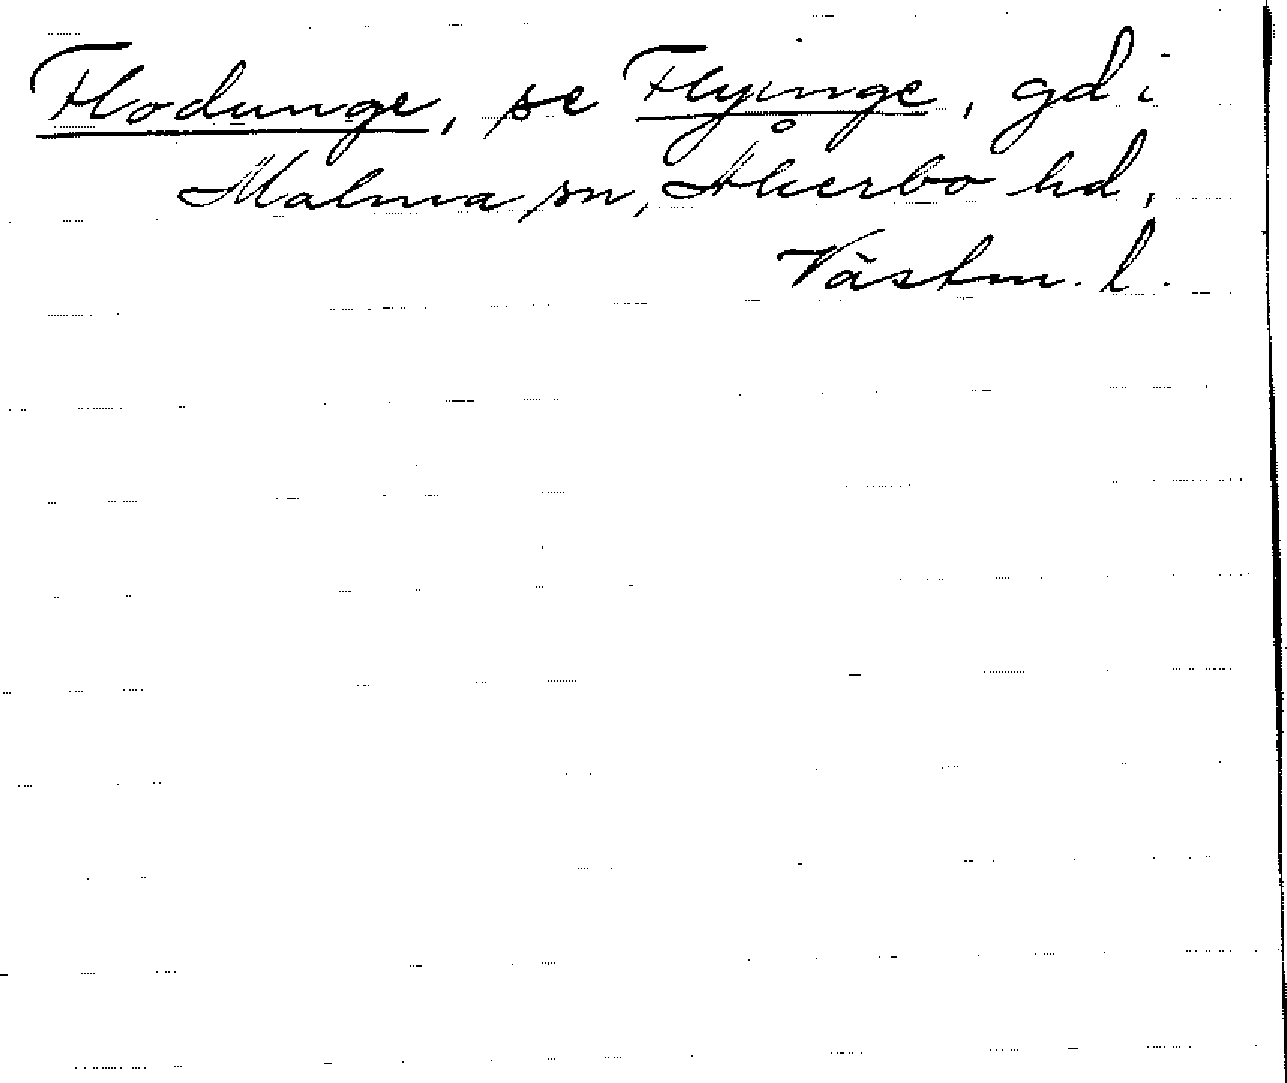 Flodunge, se Flyinge, gd i
Malma sn, Åkerbo hd,
Västm. l.